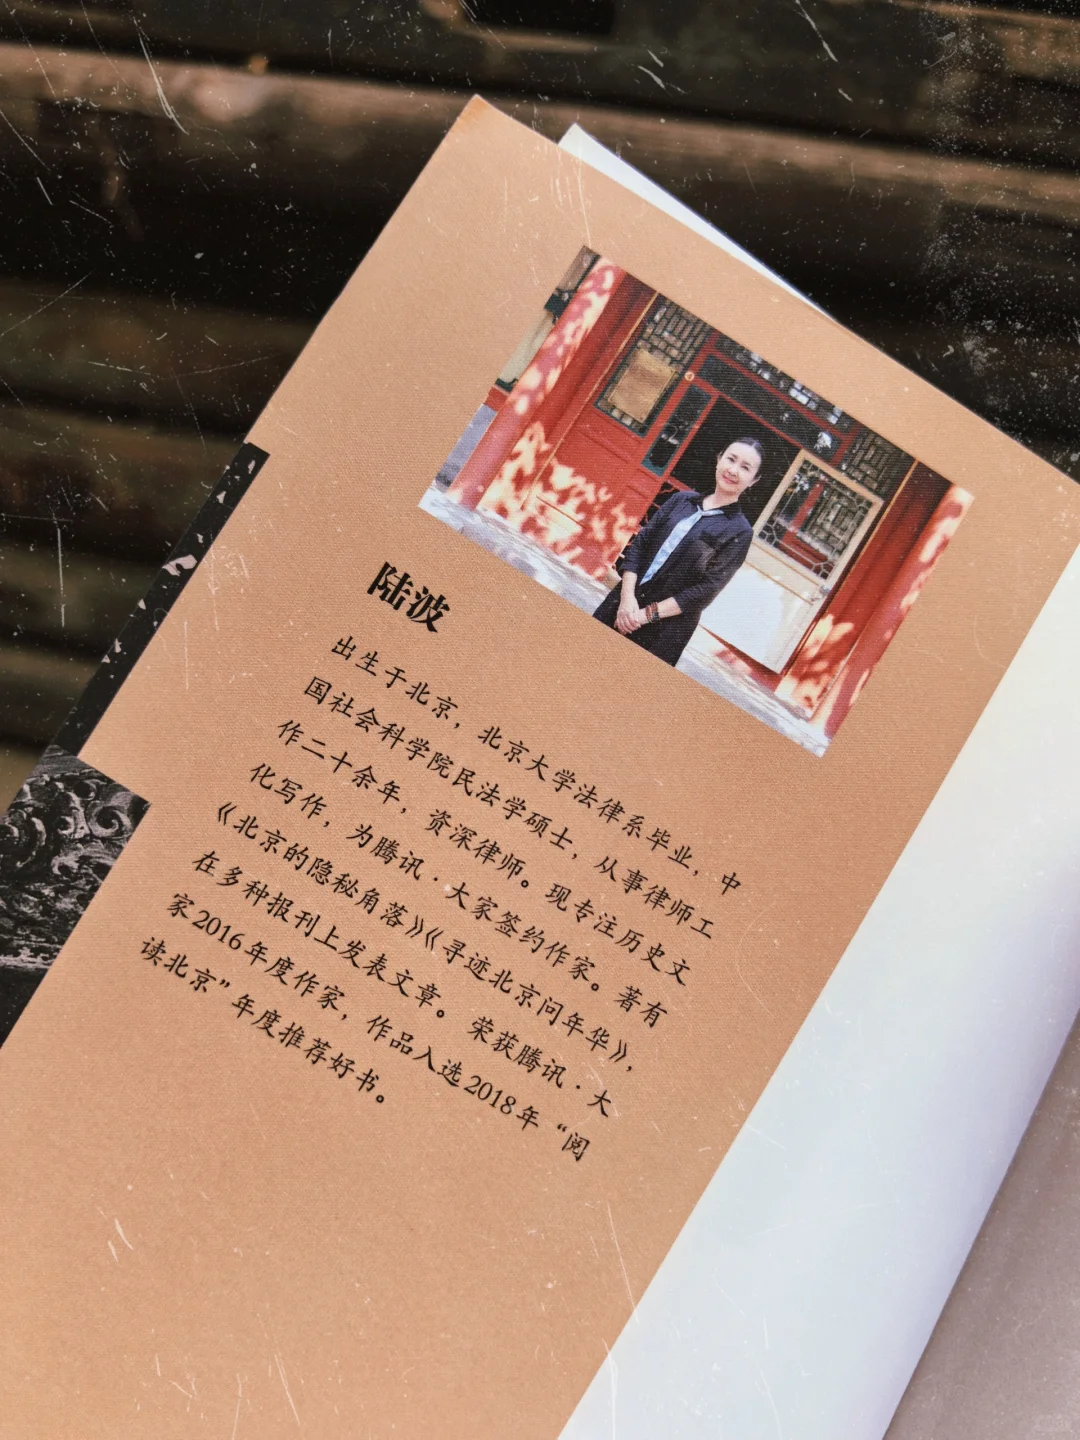 陆波
出生于北京，北京大学法律系毕业，中
国社会科学院民法学硕士，从事律师工
作二十余年，资深律师。现专注历史文
化写作，为腾讯·大家签约作家。著有
《北京的隐秘角落》《寻迹北京问年华》，
在多种报刊上发表文章。荣获腾讯·大
家2016年度作家，作品入选2018年“阅
读北京”年度推荐好书。